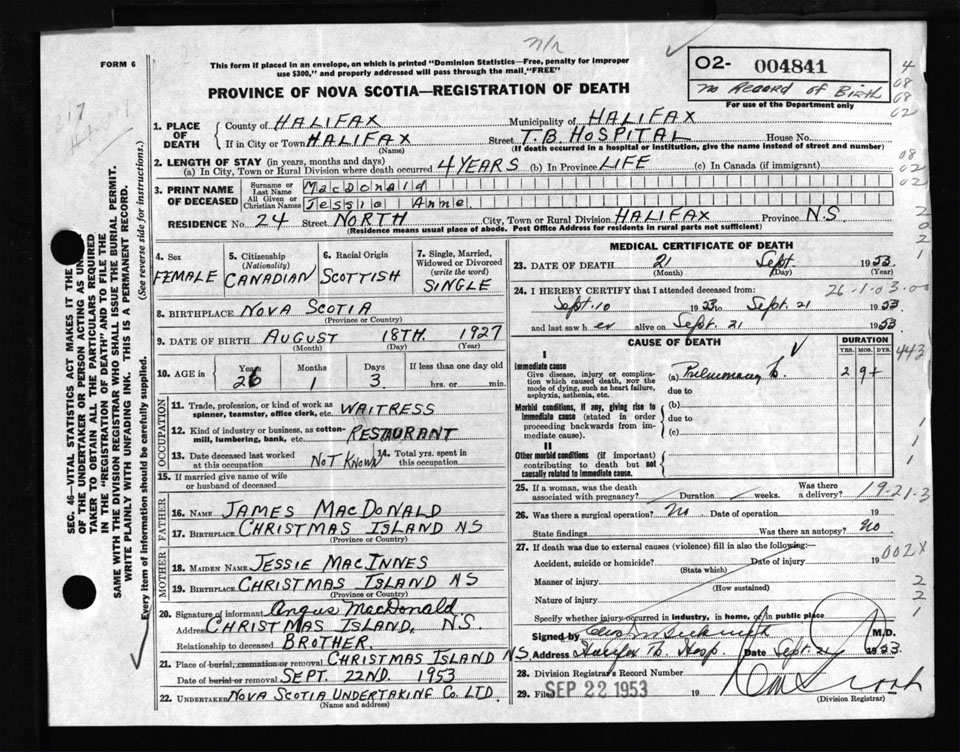 n/r
FORM 6
This form if placed in an envelope, on which is printed "Dominion Statistics—Free, penalty for improper
use $300," and properly addressed will pass through the mail, "FREE"
PROVINCE OF NOVA SCOTIA—REGISTRATION OF DEATH
02- 004841
No Record of Birth
For use of the Department only
4
08
08
02
1. PLACE OF DEATH
County of HALIFAX Municipality of HALIFAX
If in City or Town HALIFAX (Name) Street T.B. HOSPITAL House No.
(If death occurred in a hospital or institution, give the name instead of street and number)
2. LENGTH OF STAY (in years, months and days)
(a) In City, Town or Rural Division where death occurred 4 YEARS (b) In Province LIFE (c) In Canada (if immigrant)
08
02
02
3. PRINT NAME OF DECEASED
Surname or Last Name MacDonald
All Given or Christian Names Jessie Anne
RESIDENCE No. 24 Street NORTH City, Town or Rural Division HALIFAX Province N.S
(Residence means usual place of abode. Post Office Address for residents in rural parts not sufficient)
2
0
2
1
4. Sex FEMALE
5. Citizenship (Nationality) CANADIAN
6. Racial Origin SCOTTISH
7. Single, Married, Widowed or Divorced (write the word) SINGLE
8. BIRTHPLACE NOVA SCOTIA
(Province or Country)
9. DATE OF BIRTH AUGUST 18TH. 1927
(Month) (Day) (Year)
10. AGE in Years 26 Months 1 Days 3. If less than one day old
hrs. or min.
OCCUPATION
11. Trade, profession, or kind of work as
spinner, teamster, office clerk, etc. WAITRESS
12. Kind of industry or business, as cotton-
mill, lumbering, bank, etc. RESTAURANT
13. Date deceased last worked
at this occupation NOT KNOWN
14. Total yrs. spent in
this occupation
15. If married give name of wife
or husband of deceased
FATHER
16. NAME JAMES MACDONALD
17. BIRTHPLACE CHRISTMAS ISLAND NS
(Province or Country)
MOTHER
18. MAIDEN NAME JESSIE MACINNES
19. BIRTHPLACE CHRISTMAS ISLAND NS
(Province or Country)
20. Signature of informant Angus MacDonald
Address CHRISTMAS ISLAND, N.S.
Relationship to deceased BROTHER.
21. Place of burial, cremation or removal CHRISTMAS ISLAND N.S.
Date of burial or removal SEPT. 22ND. 1953
22. UNDERTAKER NOVA SCOTIA UNDERTAKING CO. LTD
(Name and address)
MEDICAL CERTIFICATE OF DEATH
23. DATE OF DEATH 21 Sept. 1953
(Month) (Day) (Year)
24. I HEREBY CERTIFY that I attended deceased from: 26-1-03.00
Sept. 10 1953 to Sept. 21 1953
and last saw her alive on Sept. 21 1953
CAUSE OF DEATH
DURATION
YRS. MOS. DYS.
443
I
Immediate cause
Give disease, injury or complica-
tion which caused death, NOT the
mode of dying, such as heart failure,
asphyxia, asthenia, etc.
(a) Pulmonary Tb. 2 9+
due to
Morbid conditions, if any, giving rise to
immediate cause (stated in order
proceeding backwards from im-
mediate cause).
(b)
due to
(c)
II
Other morbid conditions (if important)
contributing to death but not
causally related to immediate cause.
1
1
1
25. If a woman, was the death
associated with pregnancy? Duration weeks. Was there
a delivery?
19-21-3
26. Was there a surgical operation? No Date of operation 19
State findings Was there an autopsy? No
27. If death was due to external causes (violence) fill in also the following:—
Accident, suicide or homicide? Date of injury 19
(State which)
002X
Manner of injury
(How sustained)
Nature of injury
Specify whether injury occurred in industry, in home, or in public place
2
2
1
Signed by M.D.
Address Halifax Tb. Hosp. Date Sept. 21 1953
28. Division Registrar's Record Number
29. Filed SEP 22 1953 19
(Division Registrar)
SEC. 46—VITAL STATISTICS ACT MAKES IT THE
OF THE UNDERTAKER OR PERSON ACTING AS
TAKER TO OBTAIN ALL THE PARTICULARS REQUIRED
IN THE "REGISTRATION OF DEATH" AND TO FILE THE
SAME WITH THE DIVISION REGISTRAR WHO SHALL ISSUE THE BURIAL PERMIT.
WRITE PLAINLY WITH UNFADING INK. THIS IS A PERMANENT RECORD.
Every item of information should be carefully supplied. (See reverse side for instructions.)